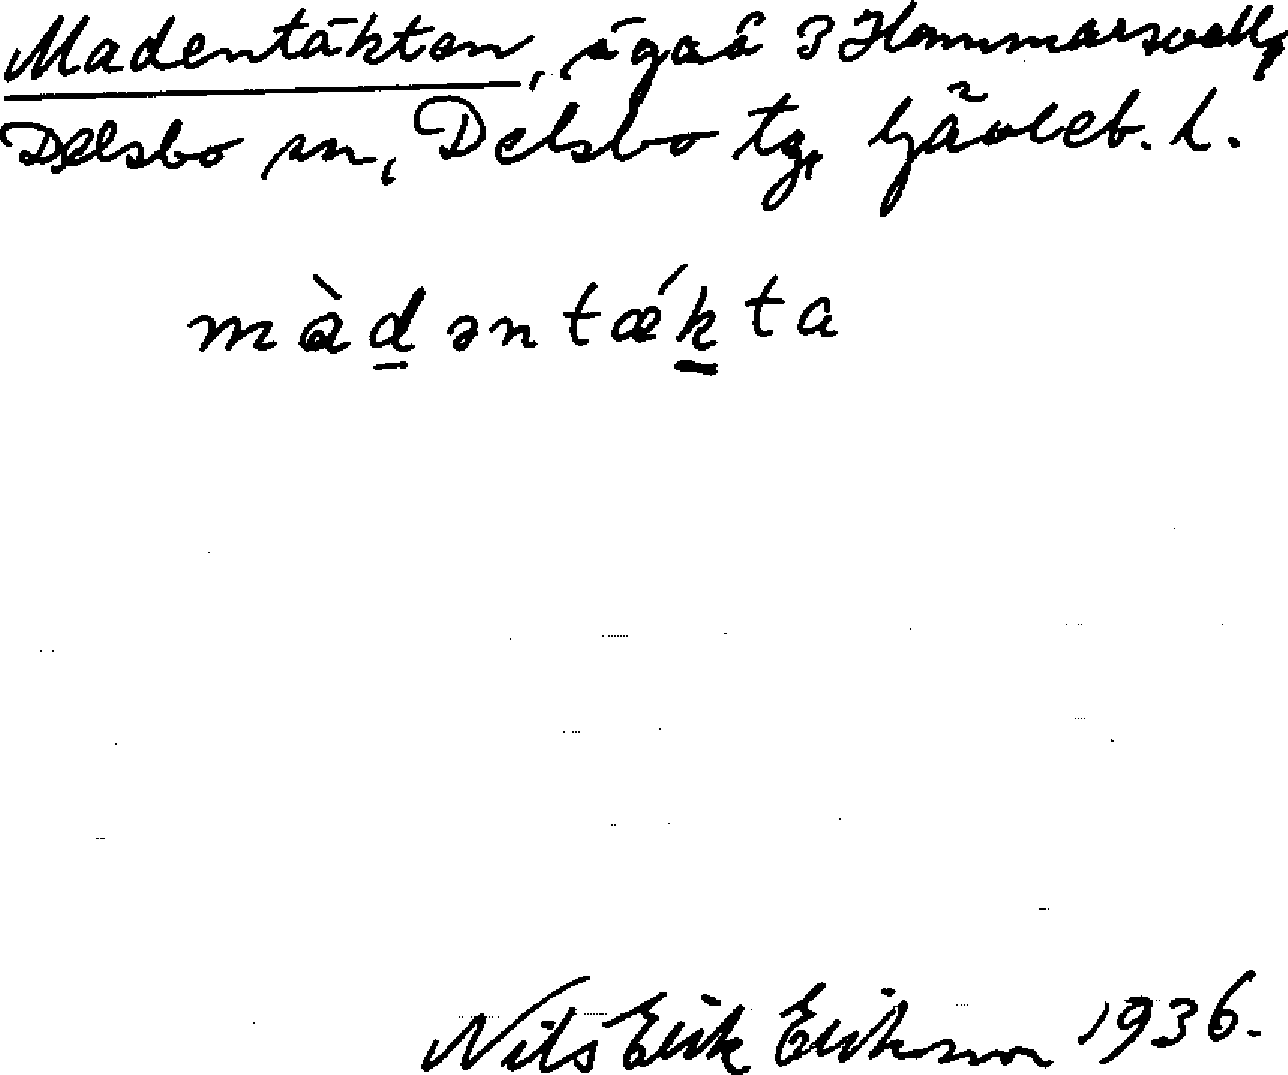 Madentäkten, ägaå 3 Hammarsvall,
Delsbo sn, Delsbo tg, Gävleb. l.
màdəntǽkta
Nils Erik Erikson 1936.